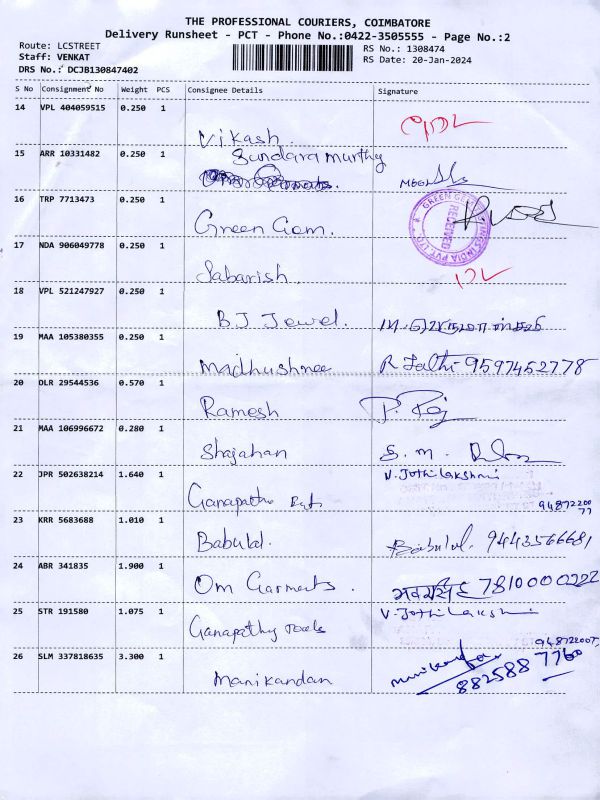 THE PROFESSIONAL COURIERS, COIMBATORE
Delivery Runsheet - PCT - Phone No.:0422-3505555 - Page No.:2
Route: LCSTREET
Staff: VENKAT
DRS No.: DCJB130847402
RS No.: 1308474
RS Date: 20-Jan-2024
S No Consignment No Weight PCS Consignee Details Signature
14 VPL 404059515 0.250 1
Vikash
15 ARR 10331482 0.250 1
Sundara murthy
16 TRP 7713473 0.250 1
Green Gem.
RECEIVED
17 NDA 906049778 0.250 1
Sabarish
18 VPL 521247927 0.250 1
B.J Jewel.
19 MAA 105380355 0.250 1
Madhushree R Jothi 9597452778
20 DLR 29544536 0.570 1
Ramesh P. Raj
21 MAA 106996672 0.280 1
Shajahan S. M.
22 JPR 502638214 1.640 1 V. Jothilakshmi
Ganapathy 94872200
77
23 KRR 5683688 1.010 1
Babulal. Babulal. 9443566681
24 ABR 341835 1.900 1
Om Garments. 7810000222
25 STR 191580 1.075 1 V. Jothilakshmi
Ganapathy Tools
26 SLM 337818635 3.300 1
Manikandan manikandan
882588 7760